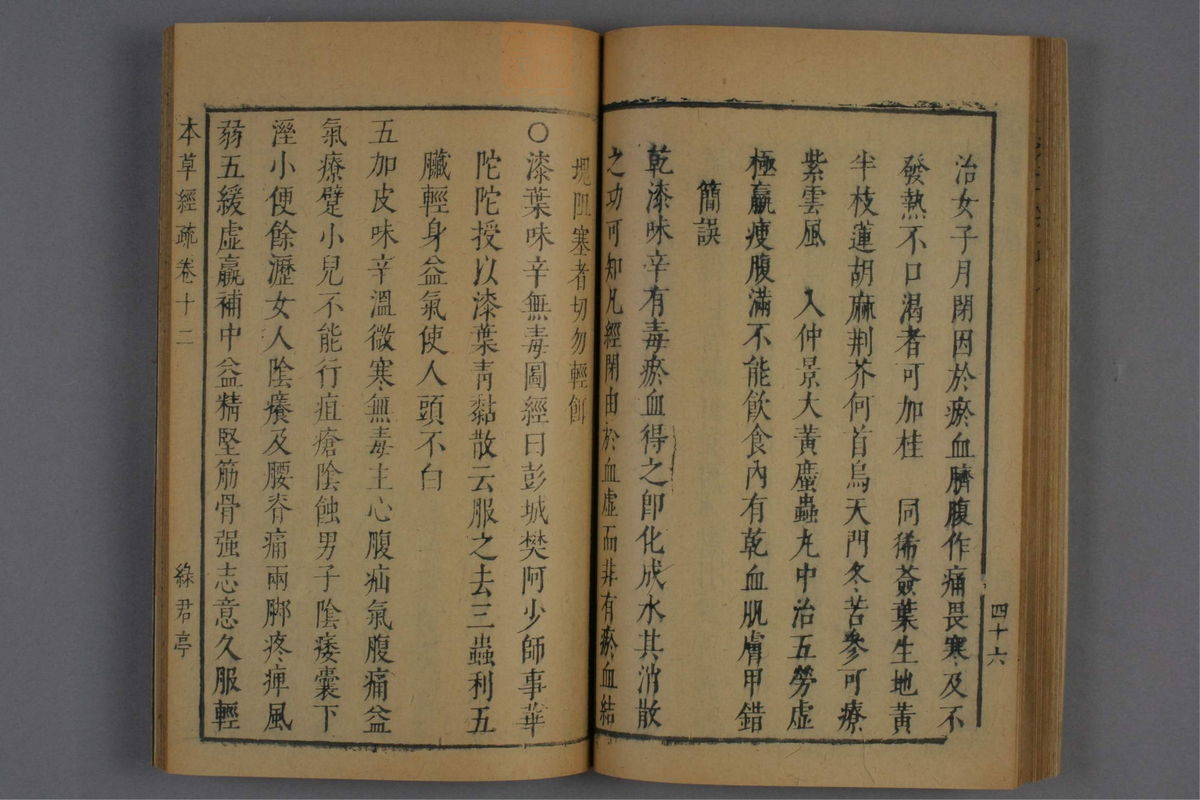 治女子月閉因於瘀血臍腹作痛畏寒及不
發熱不口渴者可加桂　同豨薟葉生地黃
半枝蓮胡麻荆芥何首烏天門冬苦參可療
紫雲風　入仲景大黃䗪蟲丸中治五勞虛
極羸瘦腹滿不能飲食內有乾血肌膚甲錯
簡誤
乾漆味辛有毒瘀血得之即化成水其消散
之功可知凡經閉由於血虛而非有瘀血結
塊阻塞者切勿輕餌
四十六
〇漆葉味辛無毒圖經曰彭城樊阿少師事華
陀陀授以漆葉靑黏散云服之去三蟲利五
臟輕身益氣使人頭不白
五加皮味辛溫微寒無毒主心腹疝氣腹痛益
氣療躄小兒不能行疽瘡陰蝕男子陰痿囊下
溼小便餘瀝女人陰癢及腰脊痛兩脚疼痺風
弱五緩虛羸補中益精堅筋骨强志意久服輕
本草經疏卷十二
綠君亭